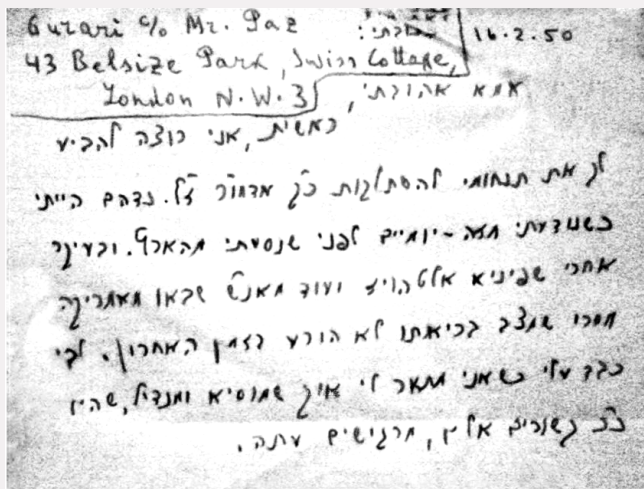 Gurari c/o Mr. Paz כתובתי: 16.2.50
43 Belsize Park, Swiss Cottage,
London N.W.3
אמא אהובתי,
ראשית, אני רוצה להביע
לך את תנחומי להסתלקות כ"ק אדמו"ר ז"ל. נדהם הייתי
כשנודעתי מזה - יומיים לפני שנסעתי מהארץ. ובעיקר
אחרי שפיניא אלטהויז ועוד מאנ"ש שבאו מאמריקה
מסרו שמצב בריאותו לא הורע בזמן האחרון. לבי
כבד עלי כשאני מתאר לי איך שמוסיא ומנדיל, שהיו
כ"כ קשורים אליו, מרגישים עתה.